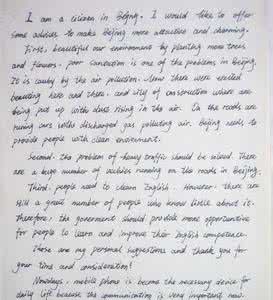 I am a citizen in Beijing. I would like to offer
some advices to make Beijing more attractive and charming.
First, beautiful our environment by planting more trees
and flowers. poor sanitation is one of the problems in Beijing.
It is caused by the air pollution. Now there were erected
building here and there, and city of construction where are
being put up with dust rising in the air. On the roads are
runing cars with discharged gas polluting air. Beijing needs to
provide people with clean environment.
Second, the problem of heavy traffic should be solved. There
are a huge number of vechiles running on the roads in Beijing.
Third, people need to learn English. However, there are
still a great number of people who know little about it.
Therefore, the government should provide more opportunities
for people to learn and improve their English competence.
These are my personal suggestions and thank you for
your time and consideration!
Nowadays, mobile phone is become the necessary device for
daily life because the communication is very important now.